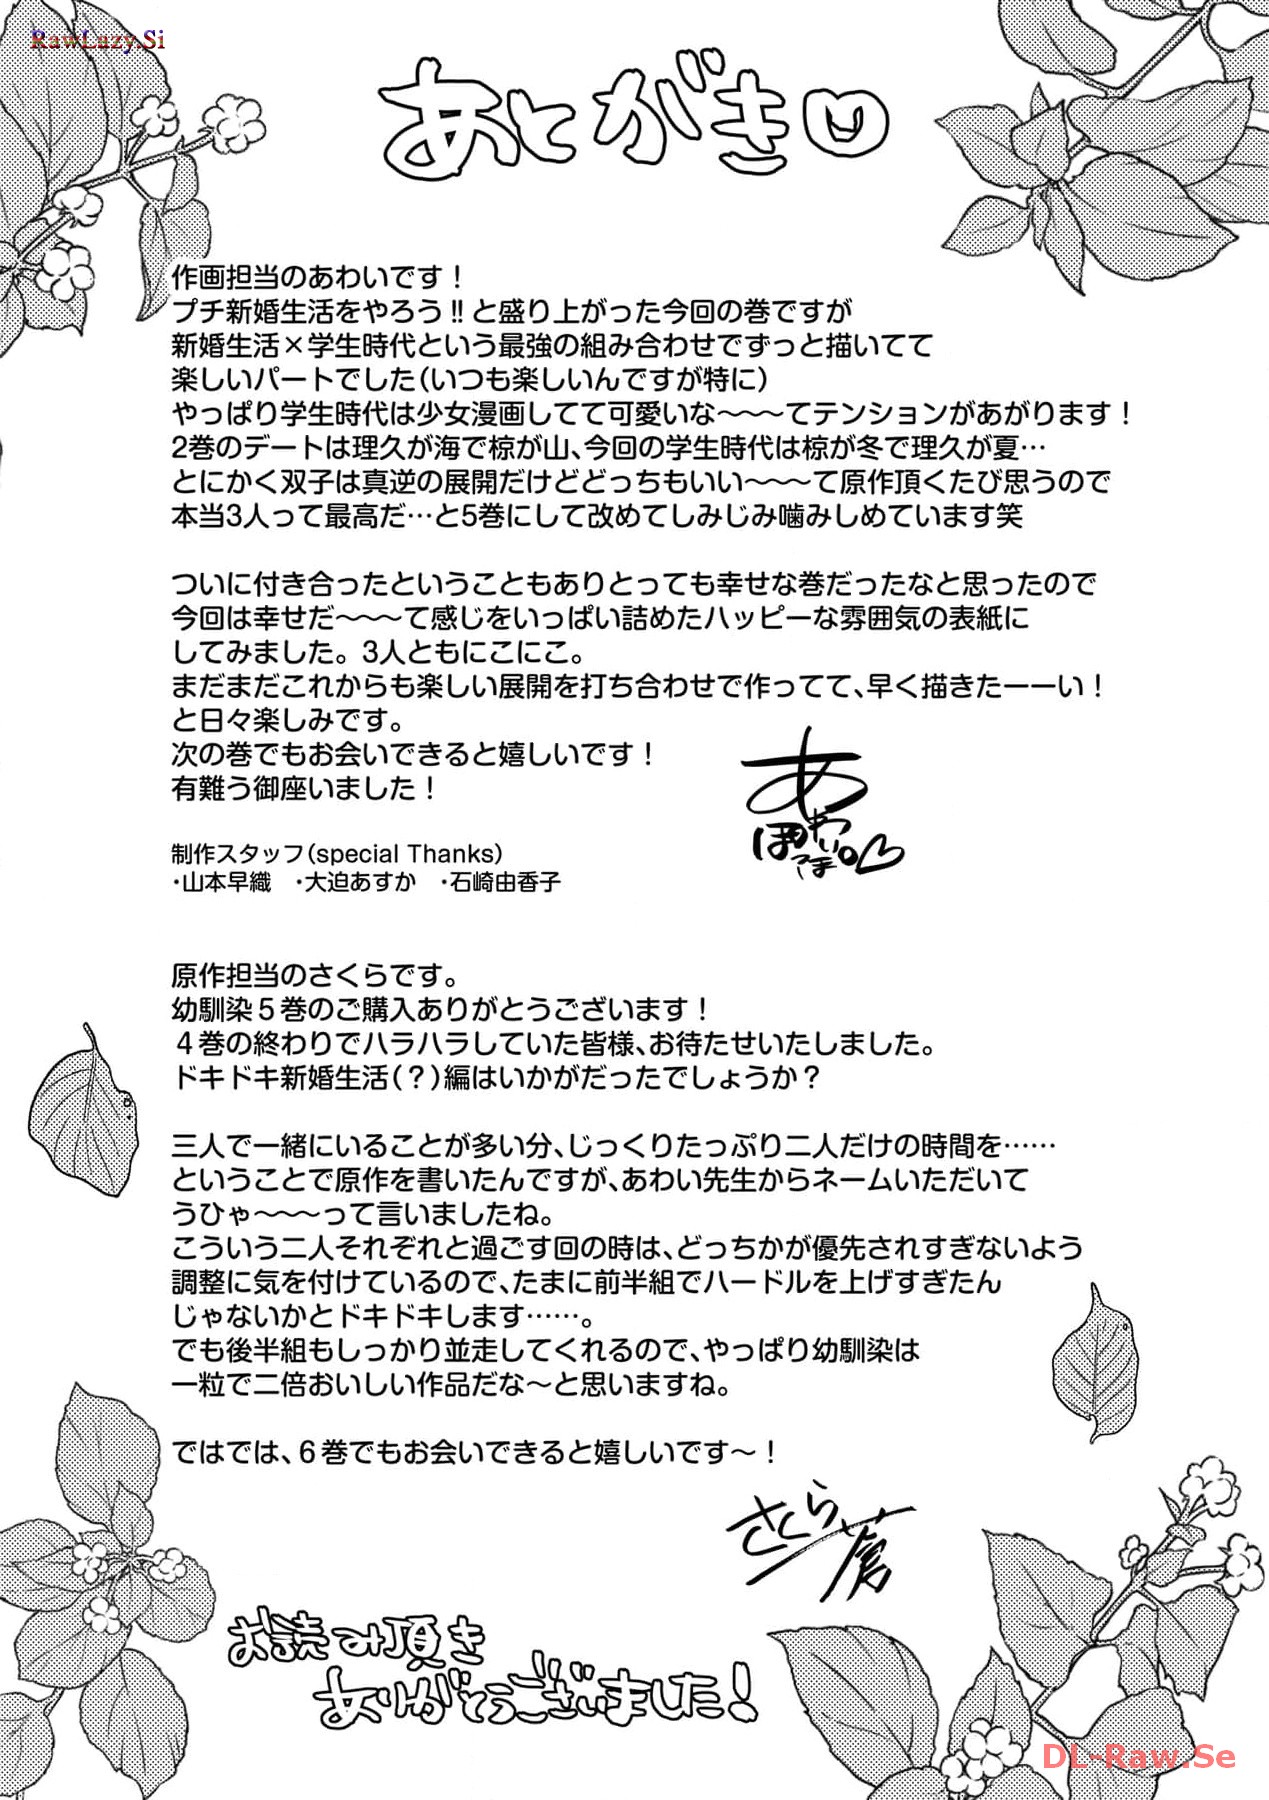 RawLazy.Si
あとがき
作画担当のあわいです！
プチ新婚生活をやろう!!と盛り上がった今回の巻ですが
新婚生活×学生時代という最強の組み合わせでずっと描いてて
楽しいパートでした（いつも楽しいんですが特に）
やっぱり学生時代は少女漫画してて可愛いな〜〜〜てテンションがあがります！
2巻のデートは理久が海で椋が山、今回の学生時代は椋が冬で理久が夏…
とにかく双子は真逆の展開だけどどっちもいい〜〜〜て原作頂くたび思うので
本当3人って最高だ…と5巻にして改めてしみじみ噛みしめています笑
ついに付き合ったということもありとっても幸せな巻だったなと思ったので
今回は幸せだ〜〜〜て感じをいっぱい詰めたハッピーな雰囲気の表紙に
してみました。3人ともにこにこ。
まだまだこれからも楽しい展開を打ち合わせで作ってて、早く描きたーーい！
と日々楽しみです。
次の巻でもお会いできると嬉しいです！
有難う御座いました！
あわい
ぽっぽ。
制作スタッフ（special Thanks）
・山本早織　・大迫あすか　・石崎由香子
原作担当のさくらです。
幼馴染５巻のご購入ありがとうございます！
４巻の終わりでハラハラしていた皆様、お待たせいたしました。
ドキドキ新婚生活（？）編はいかがだったでしょうか？
三人で一緒にいることが多い分、じっくりたっぷり二人だけの時間を……
ということで原作を書いたんですが、あわい先生からネームいただいて
うひゃ〜〜〜って言いましたね。
こういう二人それぞれと過ごす回の時は、どっちかが優先されすぎないよう
調整に気を付けているので、たまに前半組でハードルを上げすぎたん
じゃないかとドキドキします……。
でも後半組もしっかり並走してくれるので、やっぱり幼馴染は
一粒で二倍おいしい作品だな〜と思いますね。
ではでは、６巻でもお会いできると嬉しいです〜！
さくら蒼
お読み頂き
ありがとうございました！
DL-Raw.Se